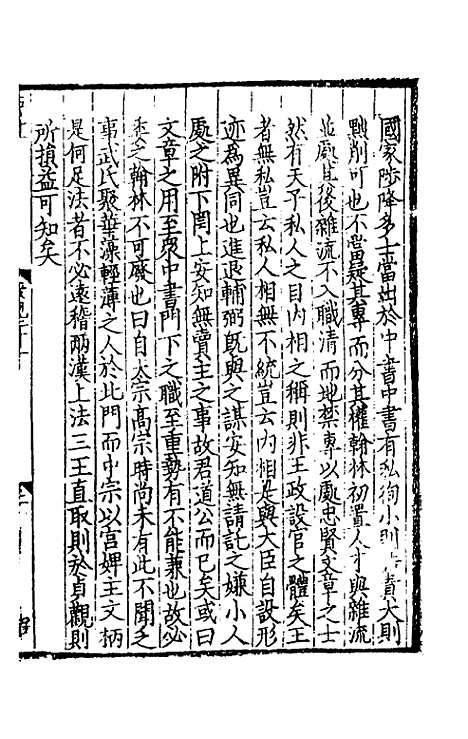 國家陟降多士當出於中書中書有私徇小則責大則
黜削可也不當疑其專而分其權翰林初置人才與雜流
並處其後雜流不入職清而地禁專以處忠賢文章之士
然有天子私人之目内相之稱則非王政設官之體矣王
者無私豈云私人相無不統豈云内相是與大臣自設形
迹為異同也進退輔弼既與之謀安知無請託之嫌小人
處之附下罔上安知無賣主之事故君道公而已矣或曰
文章之用至衆中書門下之職至重勢有不能兼也故必
委之翰林不可廢也曰自太宗高宗時尚未有此不聞乏
事武氏聚華藻輕薄之人於此門而中宗以宫婢主文柄
是何足法者不必遠稽兩漢上法三王直取則於貞觀則
所損益可知矣